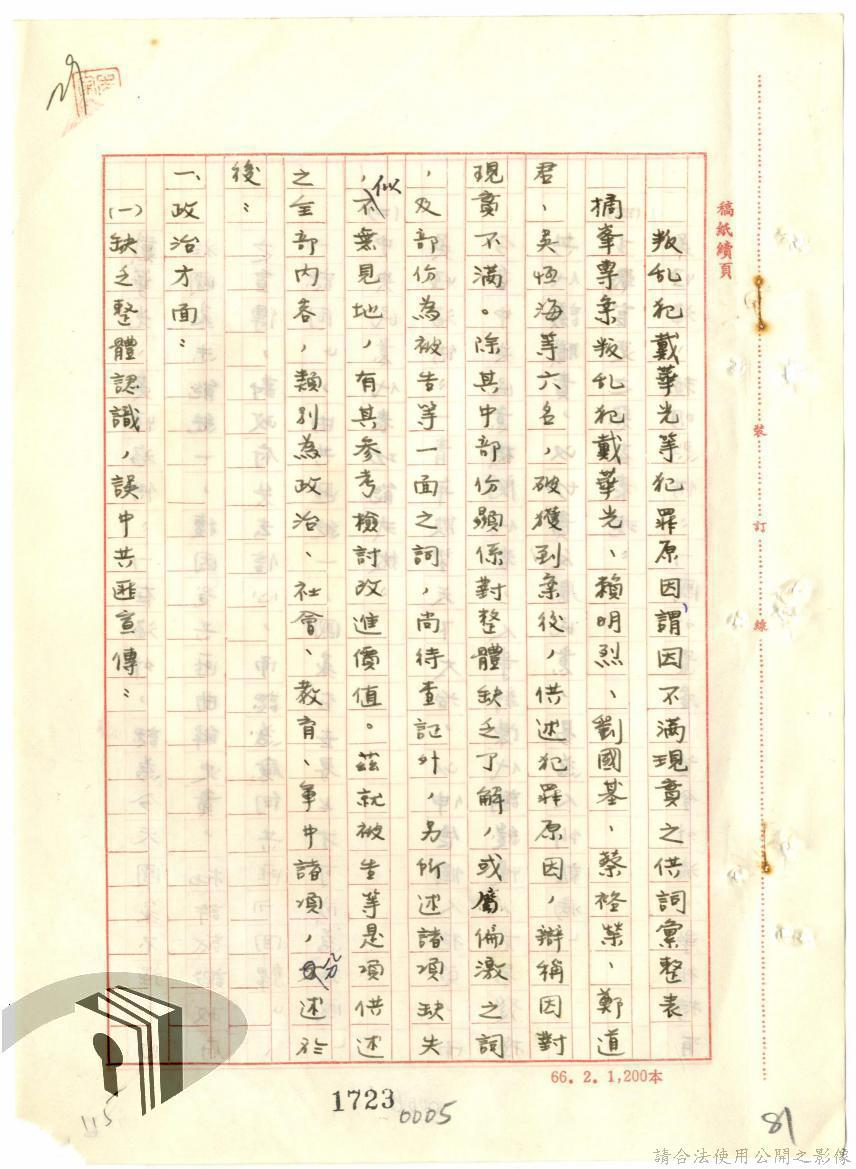 稿紙續頁
裝訂線
叛乱犯戴華光等犯罪原因謂因不滿現實之供詞彙整表
摘奉專案叛乱犯戴華光、賴明烈、劉國基、蔡裕榮、鄭道
君、吳恆海等六名，破獲到案後，供述犯罪原因，辯稱因對
現實不滿。除其中部份顯係對整體缺乏了解，或屬偏激之詞
，及部份為被告等一面之詞，尚待查証外，另所述諸項缺失
，似不無見地，有其參考檢討改進價值。茲就被告等是項供述
之全部內容，類別為政治、社會、教育、軍中諸項，分述於
後：
一、政治方面：
(一)缺乏整體認識，誤中共匪宣傳：
66. 2. 1,200本
1723
0005
115
81
請合法使用公開之影像